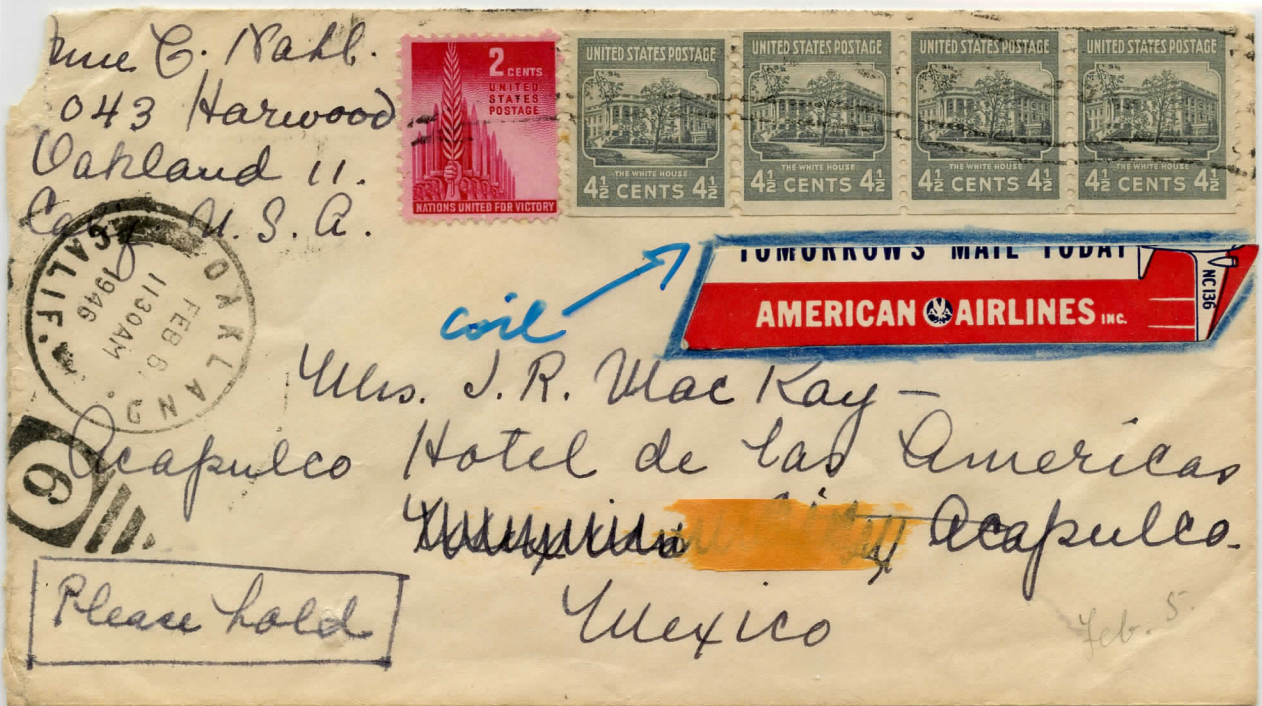 C. Nahl.
043 Harwood
Oakland 11.
Calif U. S. A.
2 CENTS
UNITED
STATES
POSTAGE
NATIONS UNITED FOR VICTORY
UNITED STATES POSTAGE
THE WHITE HOUSE
4½ CENTS 4½
UNITED STATES POSTAGE
THE WHITE HOUSE
4½ CENTS 4½
UNITED STATES POSTAGE
THE WHITE HOUSE
4½ CENTS 4½
UNITED STATES POSTAGE
THE WHITE HOUSE
4½ CENTS 4½
OAKLAND
CALIF.
FEB 6
11 30 AM
1946
6
coil
TOMORROW'S MAIL TODAY
AMERICAN AA AIRLINES INC.
NC 136
Mrs. J. R. Mac Kay –
Acapulco Hotel de las Americas
Acapulco.
Mexico
Please hold
Feb. 5.